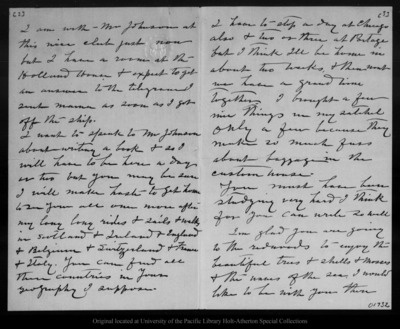 (2)
I am with Mr Johnson at
this nice club just now
but I have a room at the
Holland House & expect to get
an answer to the telegram I
sent mama as soon as I got
off the ship.
I want to speak to Mr Johnson
about writing a book & so I
will have to be here a day
or two but you may be sure
I will make haste to get home
to see you all once more after
my long long rides & sails & walks
in Scotland & Ireland & England
& Belgium & Switzerland & France
& Italy. You can find all
these countries in your
geography I suppose.
(3)
I have to stop a day at Chicago
also & two or three at Portage
but I think Ill be home in
about two weeks & then wont
we have a grand time
together. I brought a few
nice things in my satchel
only a few because they
make so much fuss
about baggage in the
custom house.
You must have been
studying very hard I think
for you can write so well
Im glad you are going
to the redwoods to enjoy the
beautiful trees & shells & mosses
& the waves of the sea. I would
like to be with you then
01732
Original located at University of the Pacific Library Holt-Atherton Special Collections